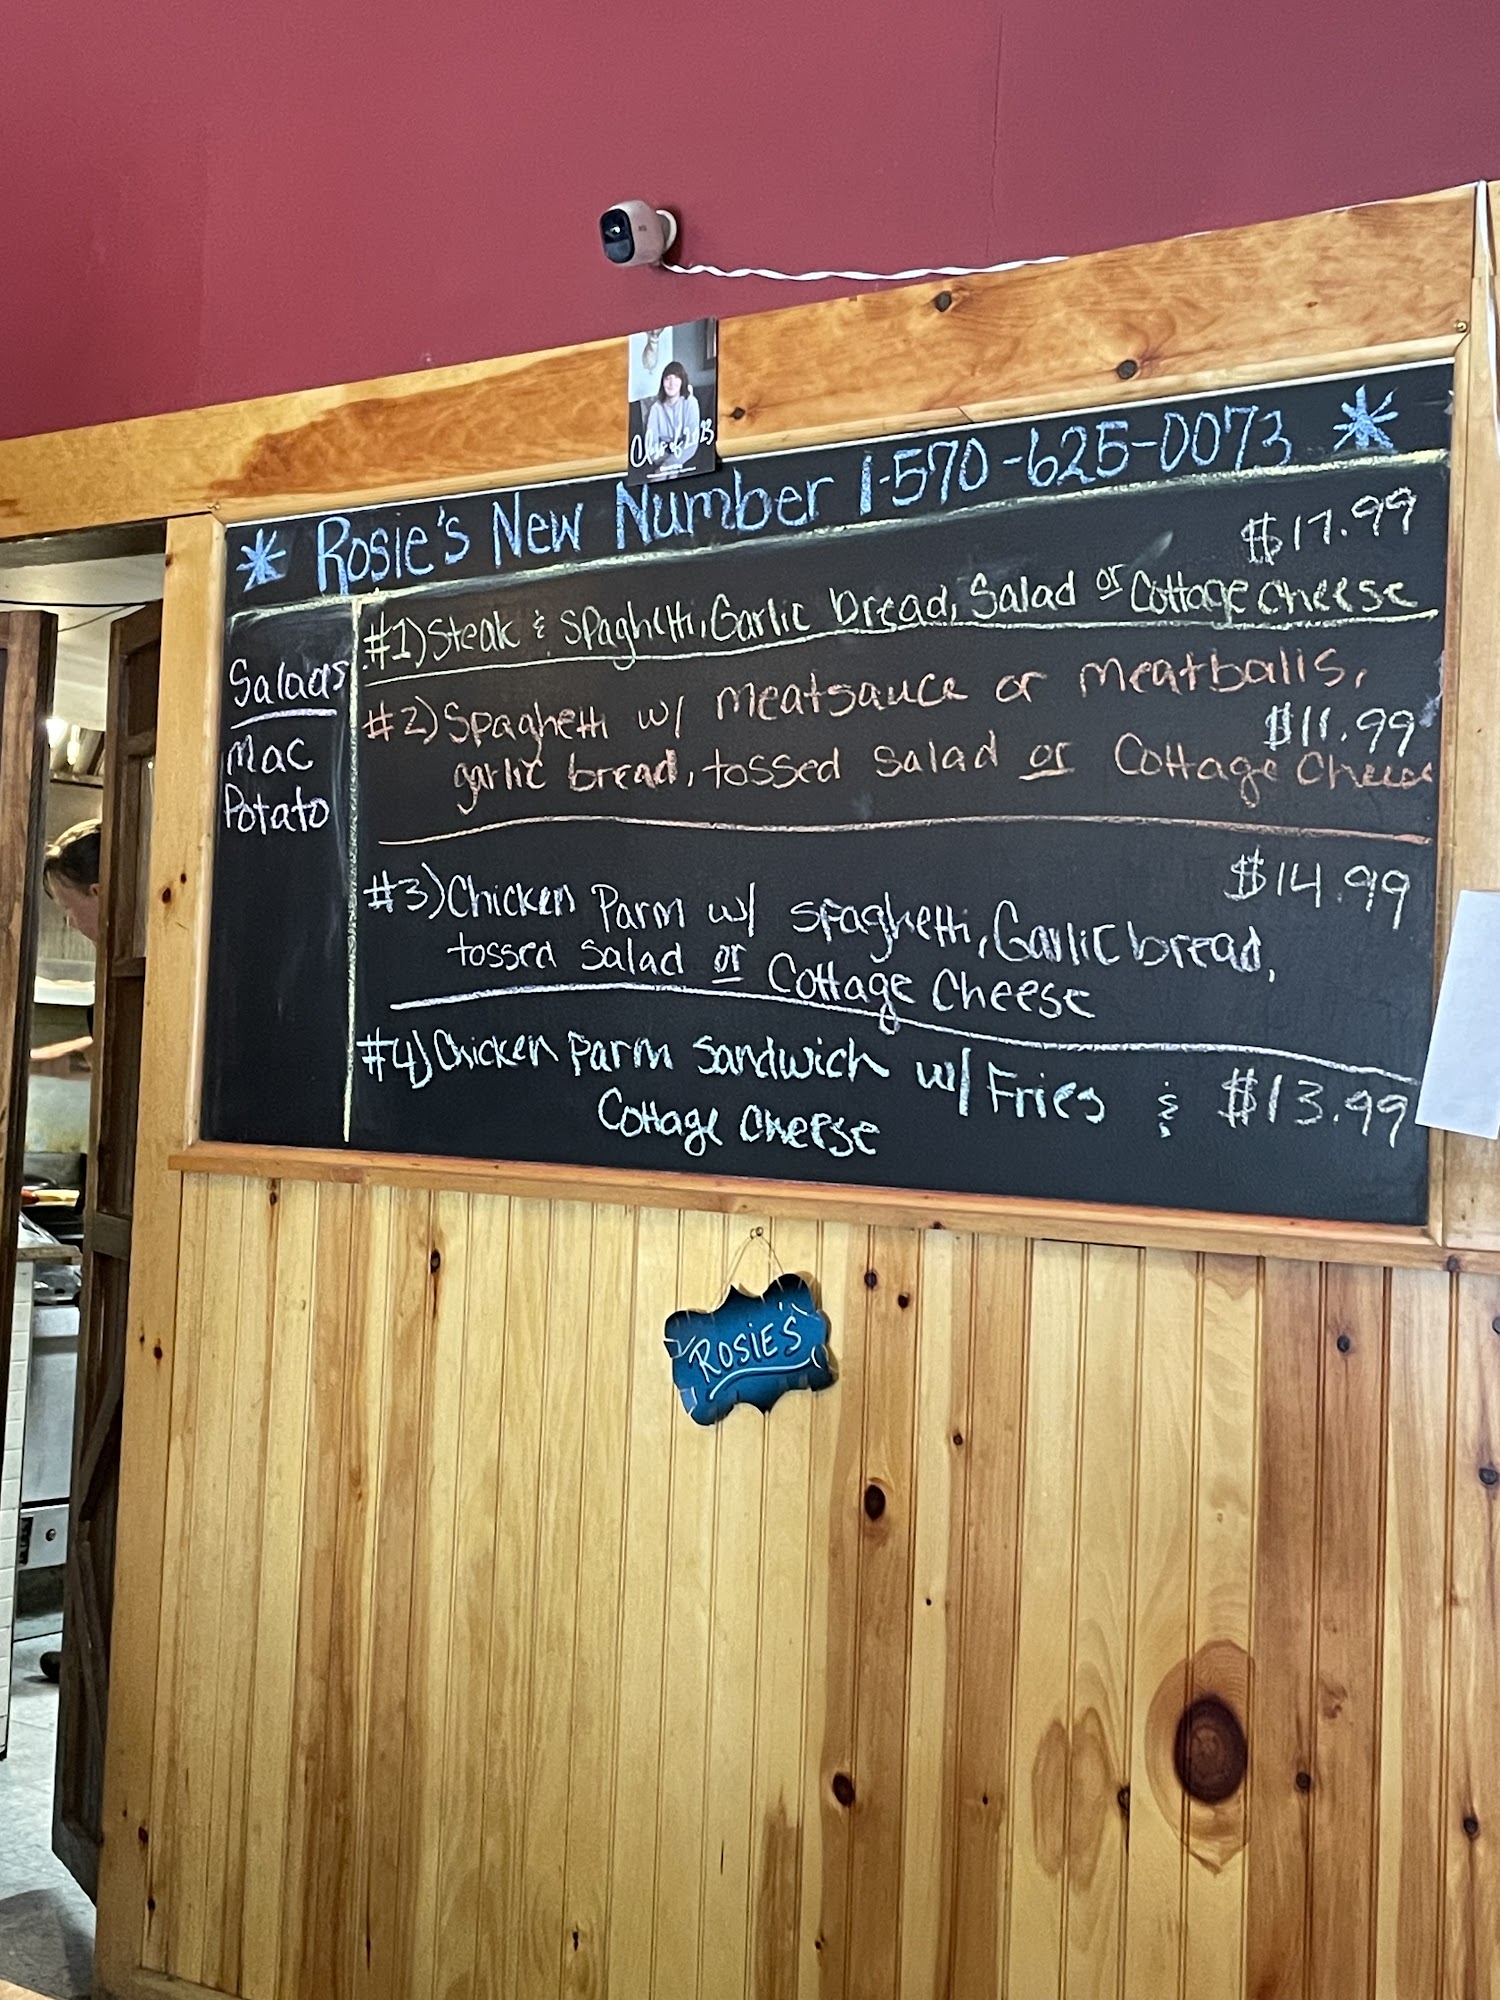 Class of 2023
* Rosie's New Number 1-570-625-0073 *
Salads
Mac
Potato
$17.99
#1) Steak & Spaghetti, Garlic bread, Salad or Cottage cheese
#2) Spaghetti w/ meatsauce or meatballs,
$11.99
garlic bread, tossed salad or Cottage Cheese
$14.99
#3) Chicken Parm w/ spaghetti, Garlic bread,
tossed salad or Cottage Cheese
#4) Chicken Parm Sandwich w/ Fries & $13.99
Cottage Cheese
ROSIE'S